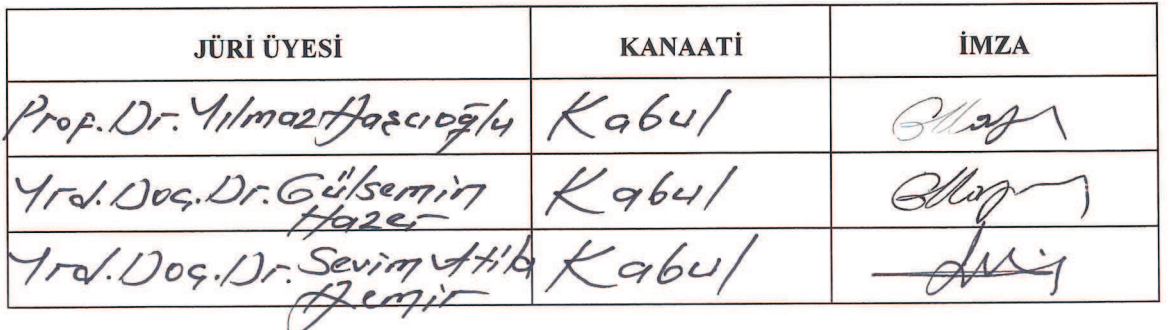 JÜRİ ÜYESİ KANAATİ İMZA
Prof. Dr. Yılmaz Daşcıoğlu Kabul
Yrd. Doç. Dr. Gülsemin Kabul
Hazer
Yrd. Doç. Dr. Sevim Atila Kabul
Demir